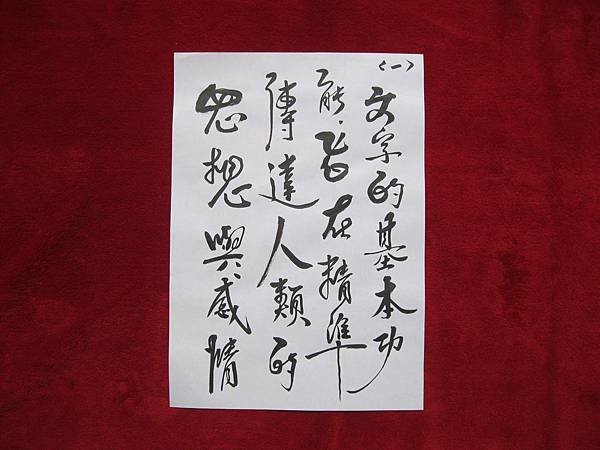 〈一〉
文字的基本功
能,旨在精準
傳達人類的
思想與感情